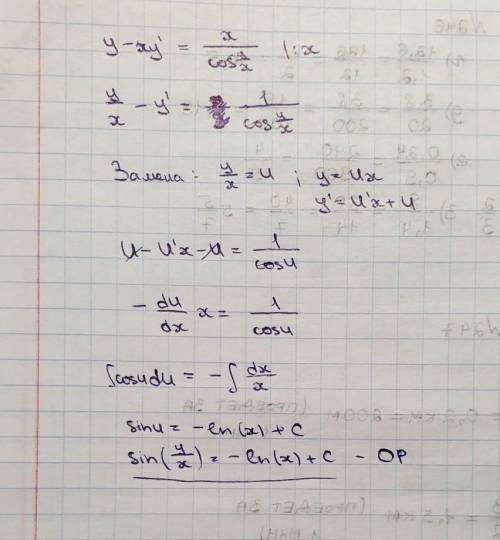 y - xy' = x / cos y/x |:x
y/x - y' = 1 / cos y/x
Замена: y/x = u ; y = ux
y' = u'x + u
u - u'x - u = 1 / cos u
- du/dx x = 1 / cos u
∫cos u du = - ∫ dx/x
sin u = -ln(x) + C
sin(y/x) = -ln(x) + C - ОР